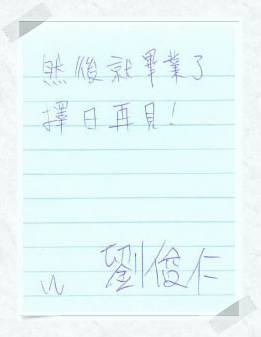 然後就畢業了
擇日再見!
劉俊仁